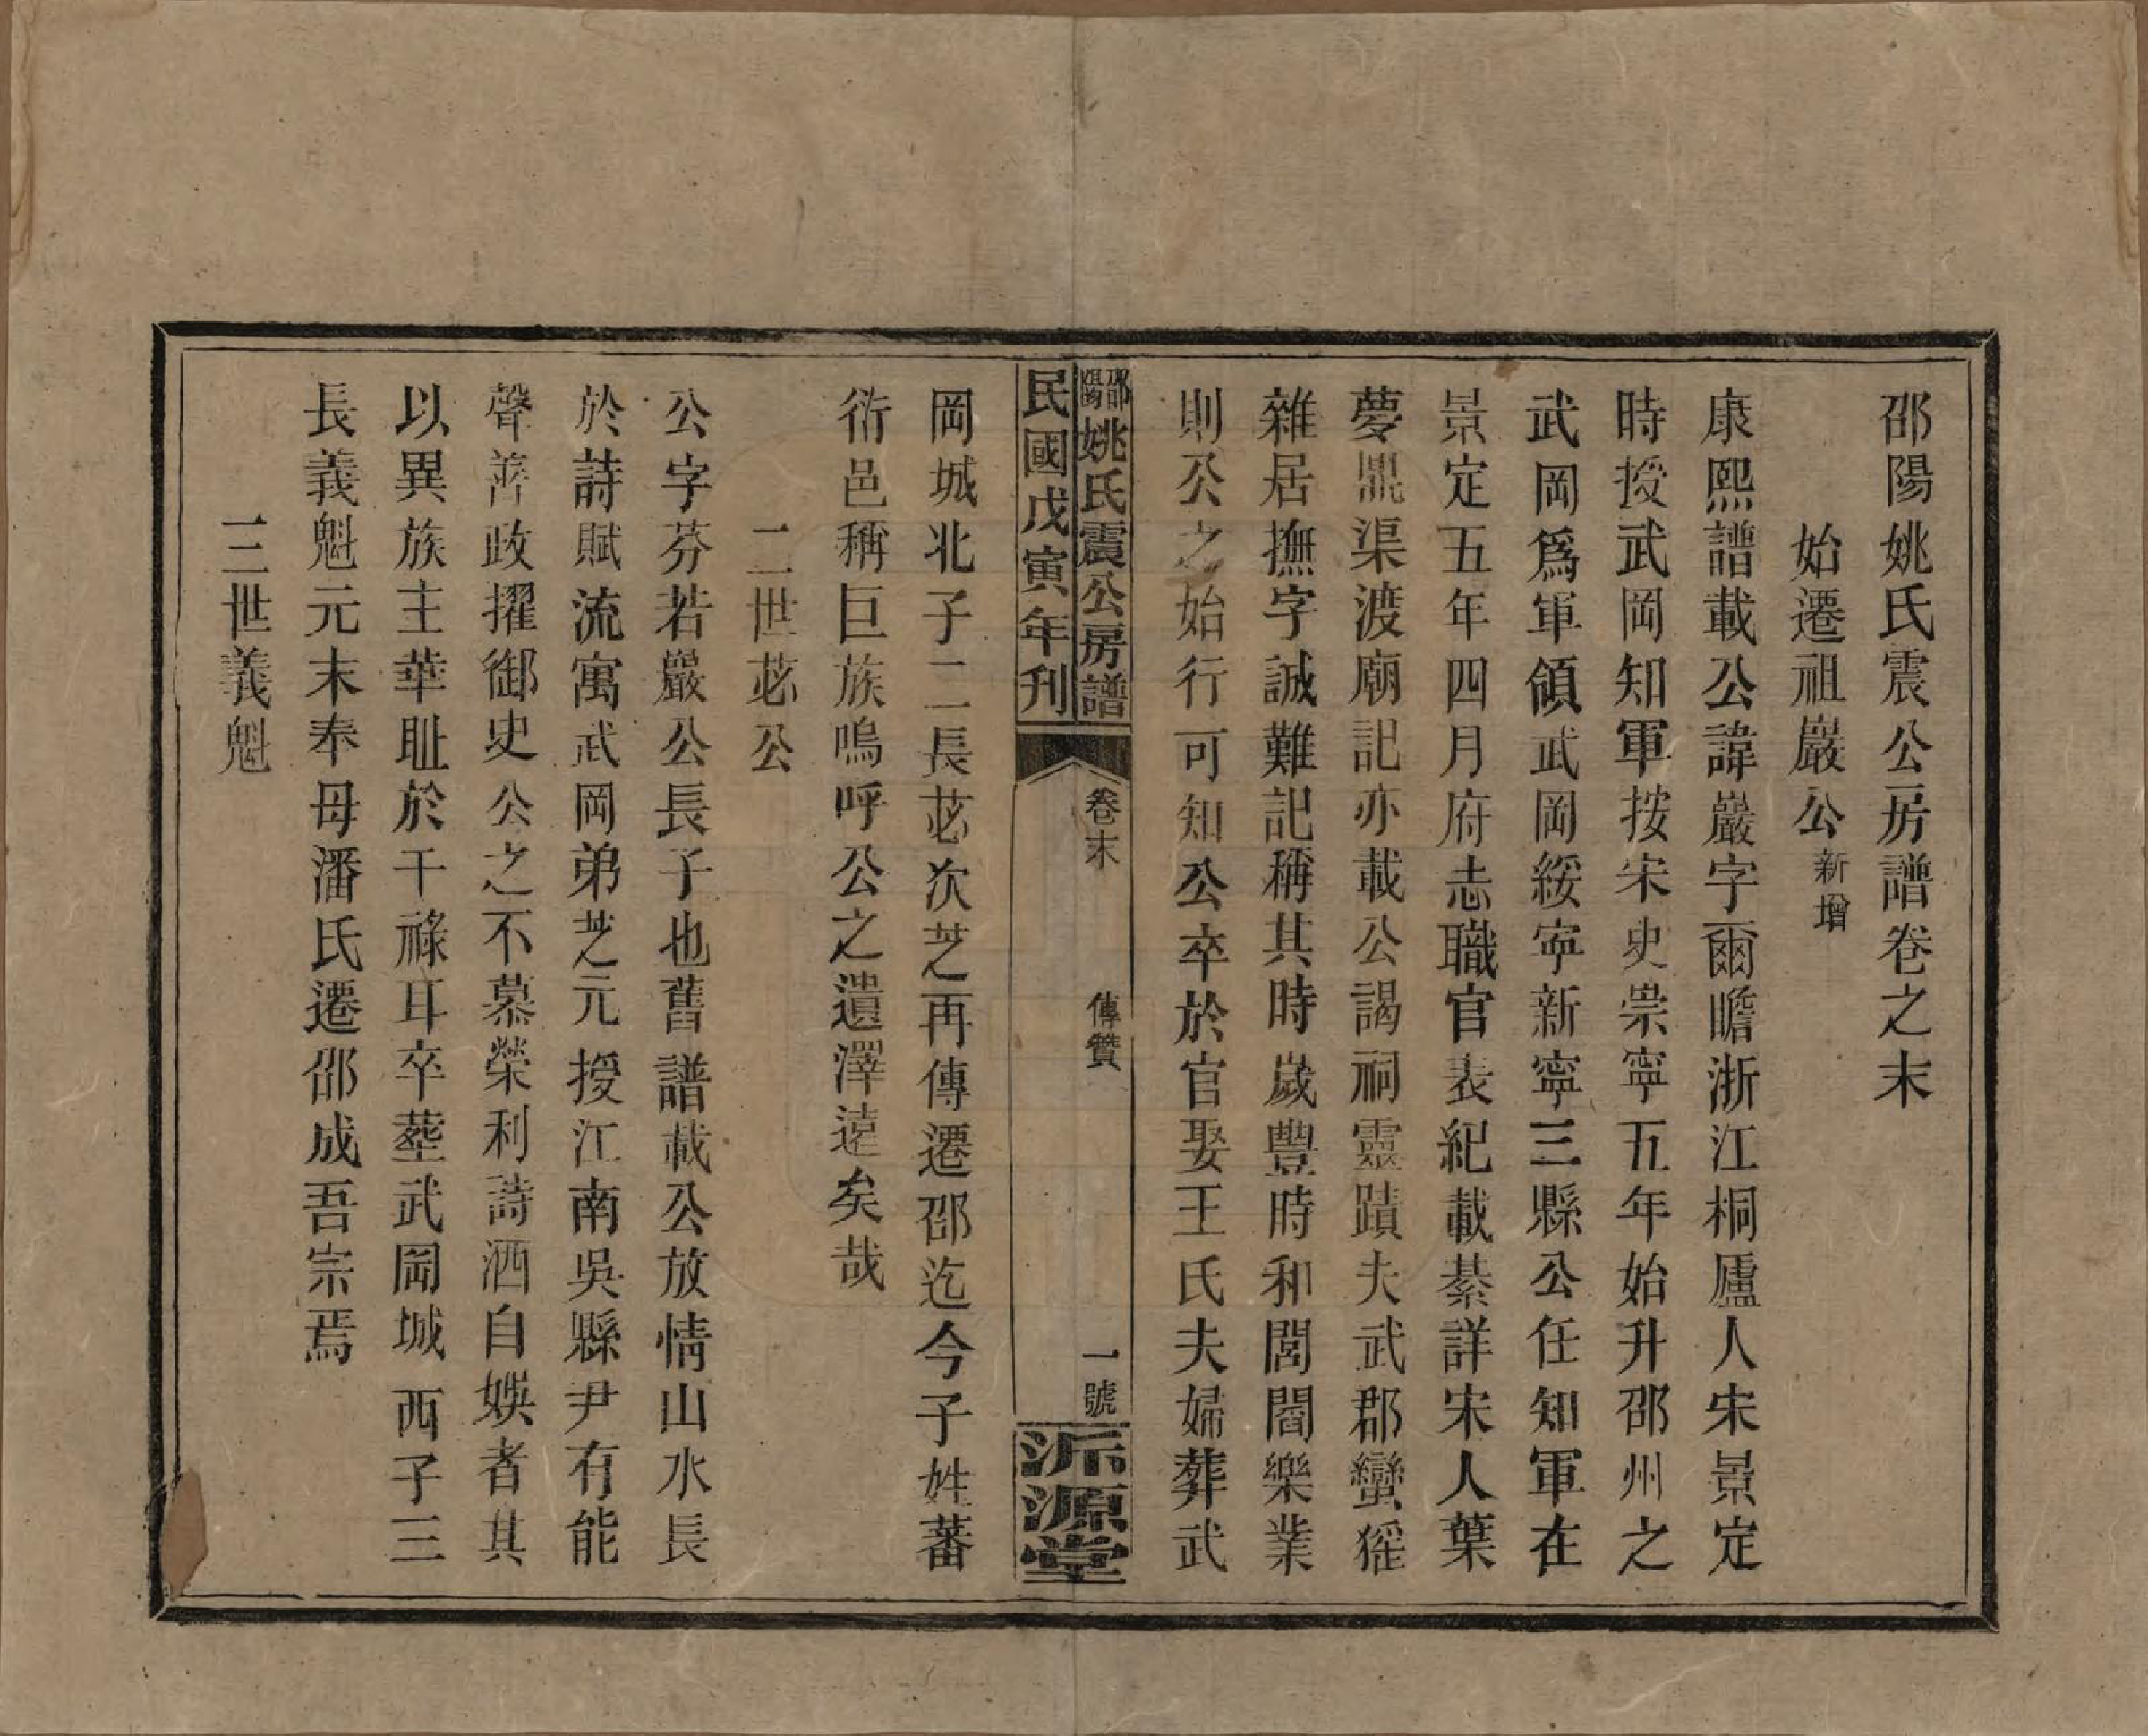 邵陽姚氏震公房譜卷之末
始遷祖嚴公新增
康熙譜載公諱嚴字爾瞻浙江桐廬人宋景定
時授武岡知軍按宋史崇寧五年始升邵州之
武岡爲軍領武岡綏寧新寧三縣公任知軍在
景定五年四月府志職官表紀載綦詳宋人葉
夢鼎渠渡廟記亦載公謁祠靈蹟夫武郡蠻猺
雜居撫字誠難記稱其時歲豐時和閭閻樂業
則公之始行可知公卒於官娶王氏夫婦葬武
邵陽姚氏震公房譜
民國戊寅年刊
卷末
傳贊
一號
派源堂
岡城北子二長苾次芝再傳遷邵迄今子姓蕃
衍邑稱巨族嗚呼公之遺澤遠矣哉
二世苾公
公字芬若嚴公長子也舊譜載公放情山水長
於詩賦流寓武岡弟芝元授江南吳縣尹有能
聲善政擢御史公之不慕榮利詩酒自娛者其
以異族主華耻於干祿耳卒塟武岡城西子三
長義魁元末奉母潘氏遷邵成吾宗焉
三世義魁